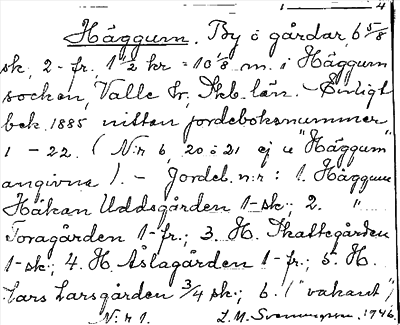 1 — 4
Häggum. By o gårdar, 6 5/8
sk, 2 - fr, 1 1/2 kr = 10 1/8 m. i Häggum
socken, Valle hr, Skb. län. - Enligt
bek. 1885 nitton jordeboksnummer
1 - 22. (N:r 6, 20 o 21 ej u "Häggum"
angivna). - Jordeb. n:r: 1. Häggum
Håkan Uddsgården 1-sk; 2. "
Toragården 1-fr.; 3. H. Skattegården
1-sk; 4. H. Åslagården 1-fr.; 5. H.
Lars Larsgården 3/4 sk; 6. ("vakant")
N:r 1. L. M. Svenungsson. 1746.